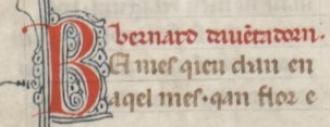 bernard dauētadorn.
BA mes qieu chan en
aqel mes· qan flor e